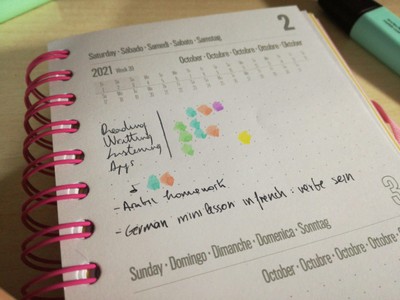 2
Saturday · Sábado · Samedi · Sabato · Samstag
October · Octubre · Octobre · Ottobre · Oktober
2021
Reading
Writting
Listening
Apps
- Arabic homework
- German mini lesson in french : verbe sein
3
Sunday · Domingo · Dimanche · Domenica · Sonntag
October · Octubre · Octobre · Ottobre